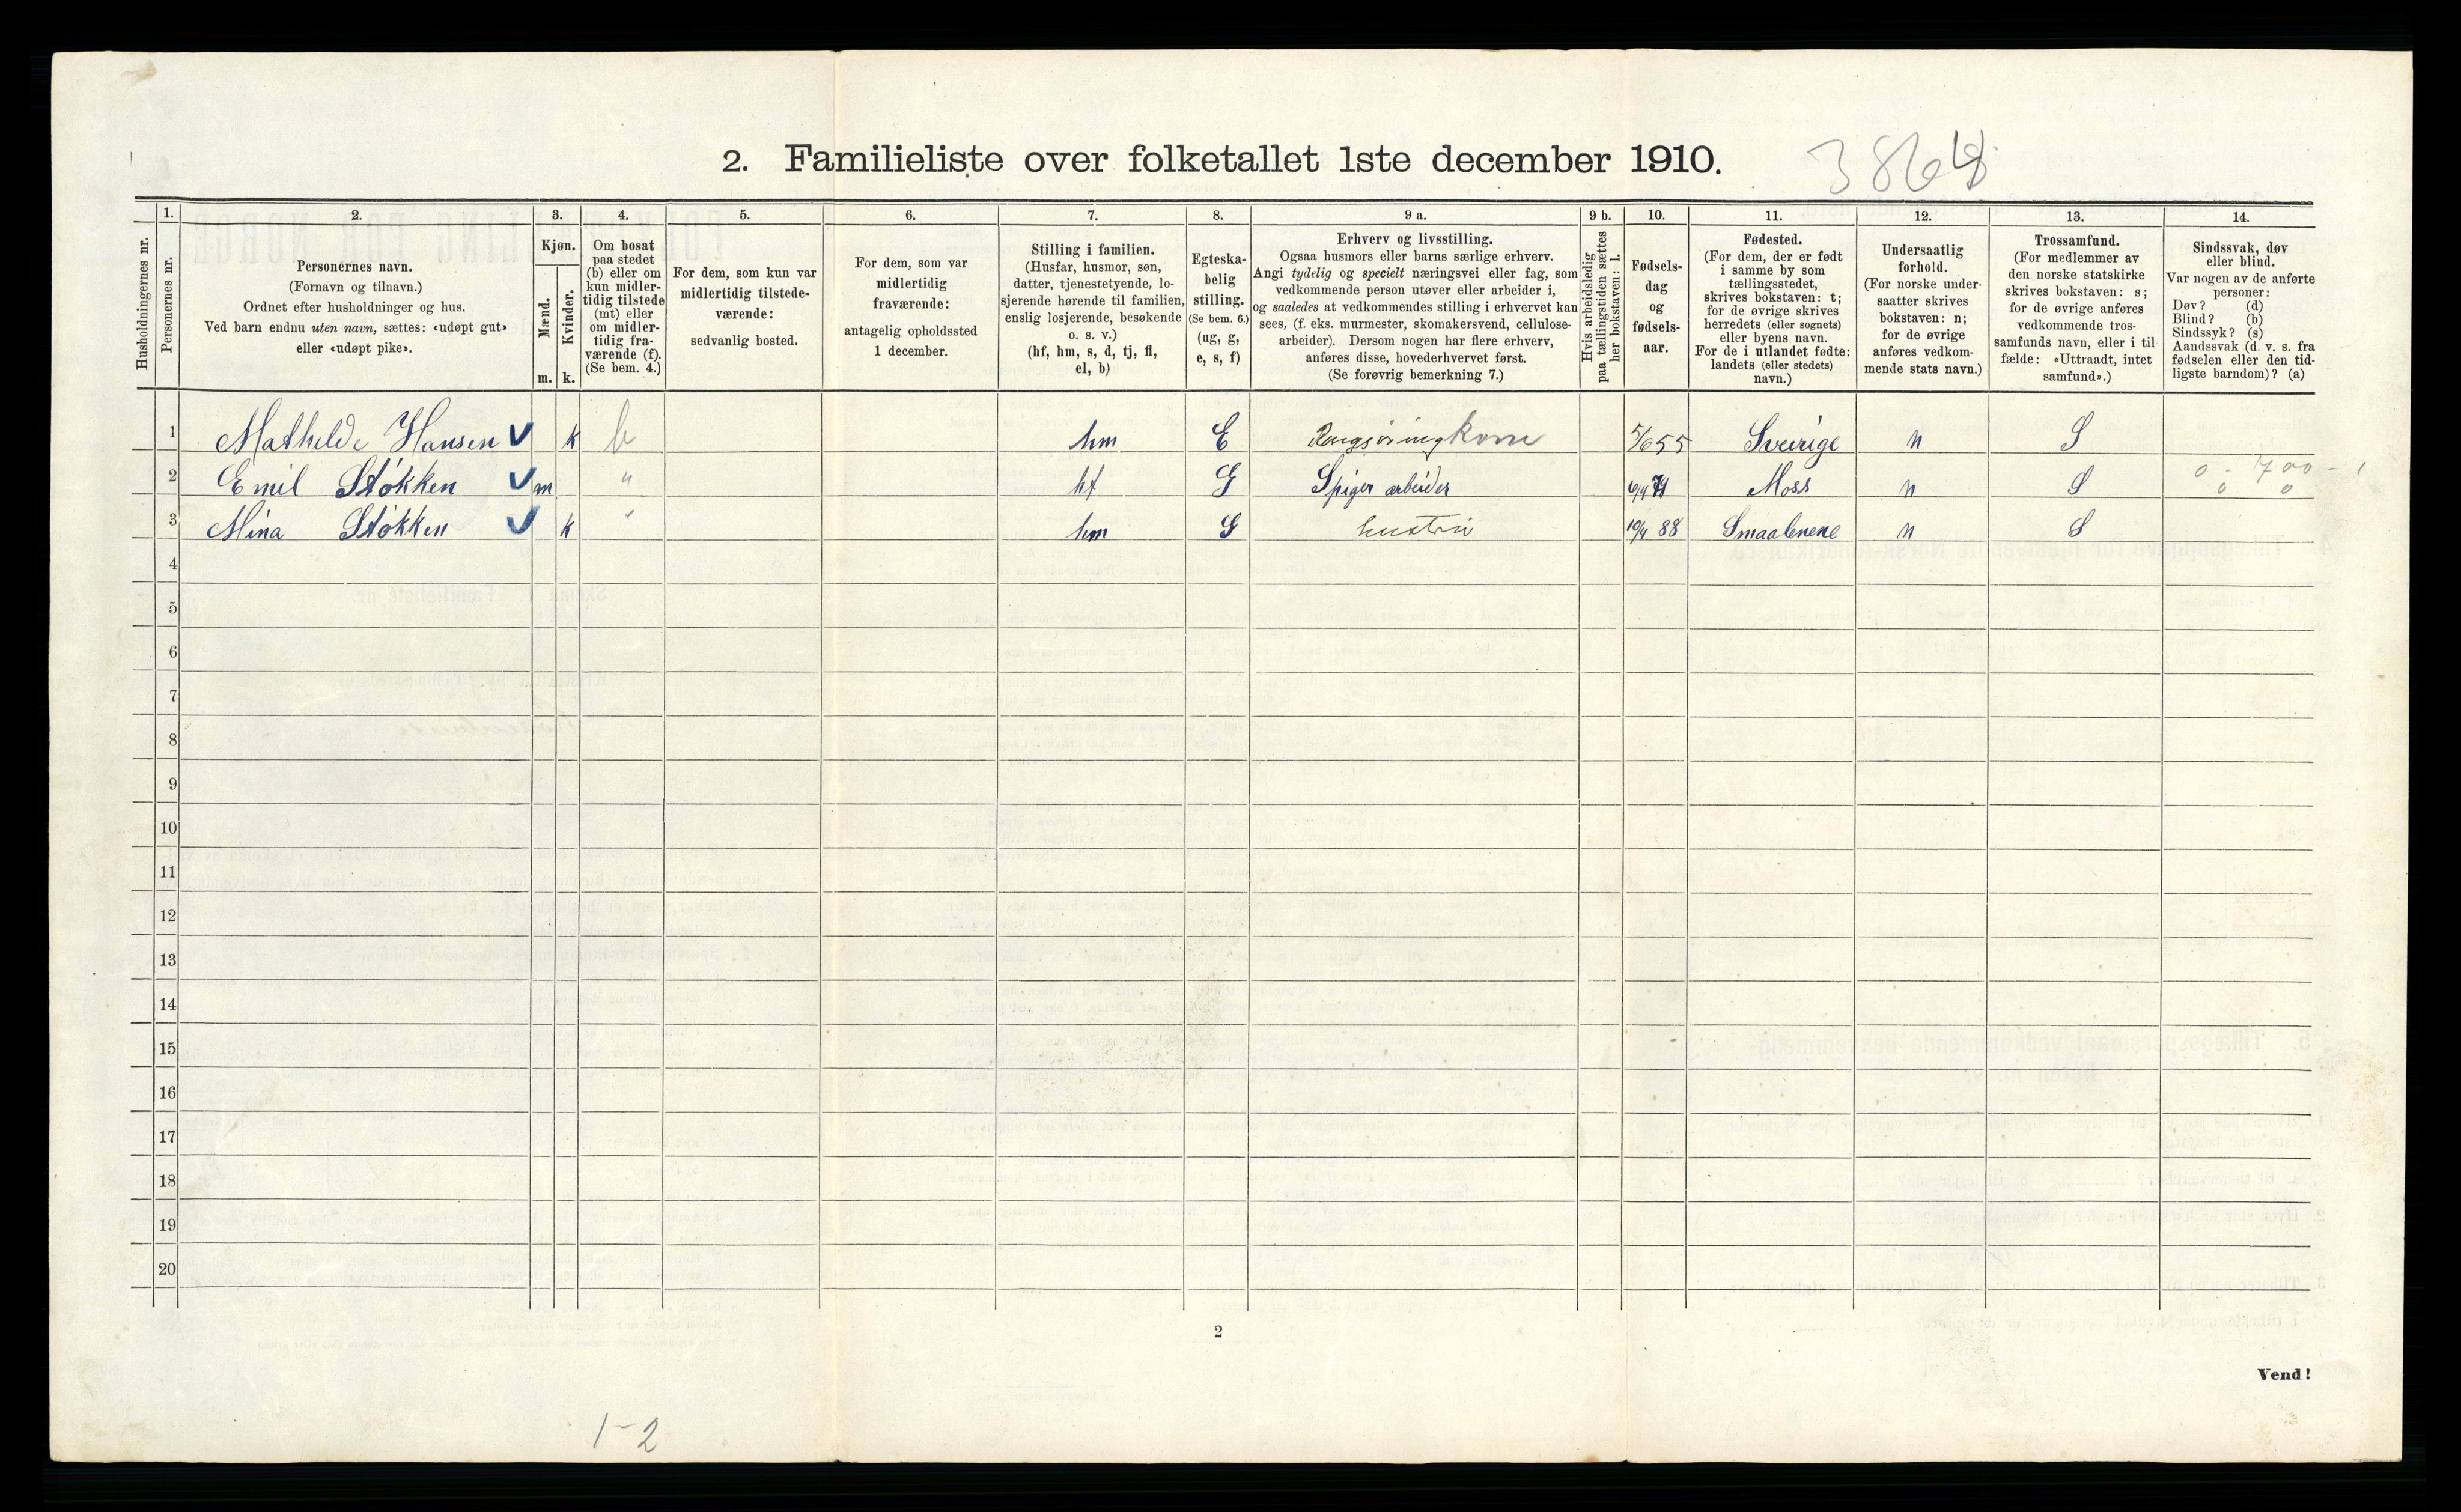 2. Familieliste over folketallet 1ste december 1910.
1. 2. 3. 4. 5. 6. 7. 8. 9 a. 9 b. 10. 11. 12. 13. 14.
Husholdningernes nr.
Personernes nr.
Personernes navn.
(Fornavn og tilnavn.)
Ordnet efter husholdninger og hus.
Ved barn endnu uten navn, sættes: «udøpt gut»
eller «udøpt pike».
Kjøn.
Mænd.
Kvinder.
m. k.
Om bosat
paa stedet
(b) eller om
kun midler-
tidig tilstede
(mt) eller
om midler-
tidig fra-
værende (f).
(Se bem. 4.)
For dem, som kun var
midlertidig tilstede-
værende:
sedvanlig bosted.
For dem, som var
midlertidig
fraværende:
antagelig opholdssted
1 december.
Stilling i familien.
(Husfar, husmor, søn,
datter, tjenestetyende, lo-
sjerende hørende til familien,
enslig losjerende, besøkende
o. s. v.)
(hf, hm, s, d, tj, fl,
el, b)
Egteska-
belig
stilling.
(Se bem. 6.)
(ug, g,
e, s, f)
Erhverv og livsstilling.
Ogsaa husmors eller barns særlige erhverv.
Angi tydelig og specielt næringsvei eller fag, som
vedkommende person utøver eller arbeider i,
og saaledes at vedkommendes stilling i erhvervet kan
sees, (f. eks. murmester, skomakersvend, cellulose-
arbeider). Dersom nogen har flere erhverv,
anføres disse, hovederhvervet først.
(Se forøvrig bemerkning 7.)
Hvis arbeidsledig
paa tællingstiden sættes
her bokstaven: l.
Fødsels-
dag
og
fødsels-
aar.
Fødested.
(For dem, der er født
i samme by som
tællingsstedet,
skrives bokstaven: t;
for de øvrige skrives
herredets (eller sognets)
eller byens navn.
For de i utlandet fødte:
landets (eller stedets)
navn.)
Undersaatlig
forhold.
(For norske under-
saatter skrives
bokstaven: n;
for de øvrige
anføres vedkom-
mende stats navn.)
Trossamfund.
(For medlemmer av
den norske statskirke
skrives bokstaven: s;
for de øvrige anføres
vedkommende tros-
samfunds navn, eller i til-
fælde: «Uttraadt, intet
samfund».)
Sindssvak, døv
eller blind.
Var nogen av de anførte
personer:
Døv? (d)
Blind? (b)
Sindssyk? (s)
Aandssvak (d. v. s. fra
fødselen eller den tid-
ligste barndom)? (a)
1 Mathilde Hansen k b hm E Rengjøringkone 5/6 55 Sverige n S
2 Emil Støkken m " hf G Spiger arbeider 6/4 Moss n S 0 - 700 - 1
0 0
3 Mina Støkken k " hm G hustru 10/4 88 Smaalenene n S
4
5
6
7
8
9
10
11
12
13
14
15
16
17
18
19
20
2
Vend!
1-2